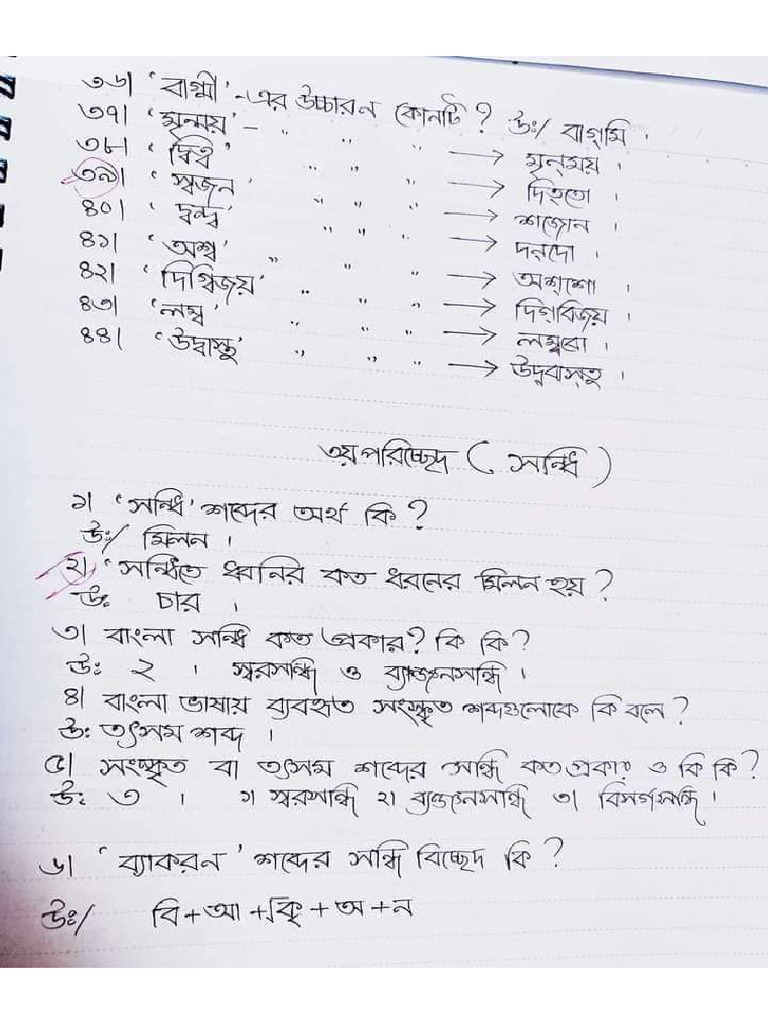 ৩৬। 'বাগ্মী' -এর উচ্চারন কোনটি? উঃ/ বাগ্‌মি।
৩৭। 'মৃন্ময়' - " " " → মৃন্‌ময়।
৩৮। " " " → দিত্‌তো।
৩৯। 'স্বজন' " " " → শজোন।
৪০। 'দ্বন্দ্ব' " " " → দন্‌দো।
৪১। 'অশ্ব' " " " → অশ্‌শো।
৪২। 'দিগ্বিজয়' " " " → দিগ্‌বিজয়।
৪৩। 'লম্ব' " " " → লম্‌বো।
৪৪। 'উদ্বাস্তু' " " " → উদ্‌বাস্‌তু।
৩য় পরিচ্ছেদ (সন্ধি)
১। 'সন্ধি' শব্দের অর্থ কি?
উঃ/ মিলন।
২। 'সন্ধিতে ধ্বনির কত ধরনের মিলন হয়?
উঃ চার।
৩। বাংলা সন্ধি কত প্রকার? কি কি?
উঃ ২। স্বরসন্ধি ও ব্যঞ্জনসন্ধি।
৪। বাংলা ভাষায় ব্যবহৃত সংস্কৃত শব্দগুলোকে কি বলে?
উঃ তৎসম শব্দ।
৫। সংস্কৃত বা তৎসম শব্দের সন্ধি কত প্রকার ও কি কি?
উঃ ৩। ১। স্বরসন্ধি ২। ব্যঞ্জনসন্ধি ৩। বিসর্গসন্ধি।
৬। 'ব্যাকরন' শব্দের সন্ধি বিচ্ছেদ কি?
উঃ/ বি+আ+কৃ+অ+ন